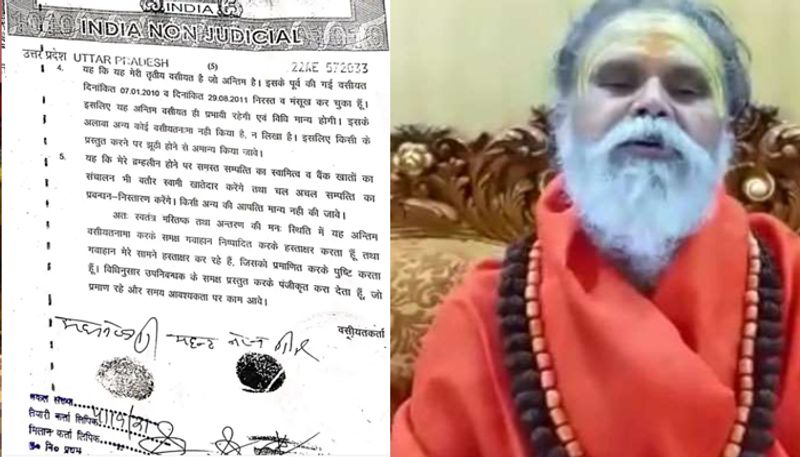 INDIA
INDIA NON JUDICIAL
उत्तर प्रदेश UTTAR PRADESH
(5)
22AE 572033
4. यह कि यह मेरी तृतीय वसीयत है जो अन्तिम है। इसके पूर्व की गई वसीयत
दिनांकित 07.01.2010 व दिनांकित 29.08.2011 निरस्त व मंसूख कर चुका हूँ।
इसलिए यह अन्तिम वसीयत ही प्रभावी रहेगी एवं विधि मान्य होगी। इसके
अलावा अन्य कोई वसीयतनामा नही किया है, न लिखा है। इसलिए किसी के
प्रस्तुत करने पर झूठी होने से अमान्य किया जावे।
5. यह कि मेरे ब्रम्हलीन होने पर समस्त सम्पत्ति का स्वामित्व व बैंक खातों का
संचालन भी बतौर स्वामी खातेदार करेंगे तथा चल अचल सम्पत्ति का
प्रबन्धन-निस्तारण करेंगे। किसी अन्य की आपत्ति मान्य नही की जावे।
अतः स्वतंत्र मस्तिष्क तथा अन्तरण की मनः स्थिति में यह अन्तिम
वसीयतनामा करके समक्ष गवाहान निष्पादित करके हस्ताक्षर करता हूँ तथा
गवाहान मेरे सामने हस्ताक्षर कर रहे हैं, जिसको प्रमाणित करके पुष्टि करता
हूँ। विधिनुसार उपनिबन्धक के समक्ष प्रस्तुत करके पंजीकृत करा देता हूँ, जो
प्रमाण रहे और समय आवश्यकता पर काम आवे।
वसीयतकर्ता
नकल संख्या
तैयारी कर्ता लिपिक
मिलान कर्ता लिपिक
उ० नि० प्रथम